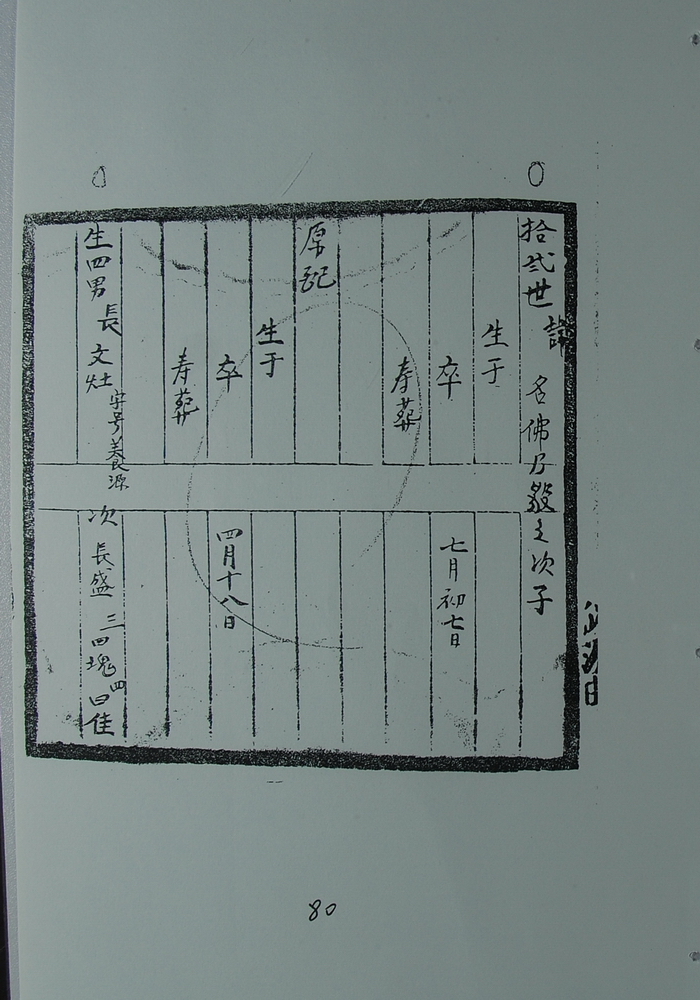 拾弍世 諱 名佛乃發之次子
生于
卒 七月初七日
寿 葬
原配
生于
卒 四月十八日
寿 葬
生四男 長 文灶 字号養源 次 長盛 三 四塊 四 曰佳
80